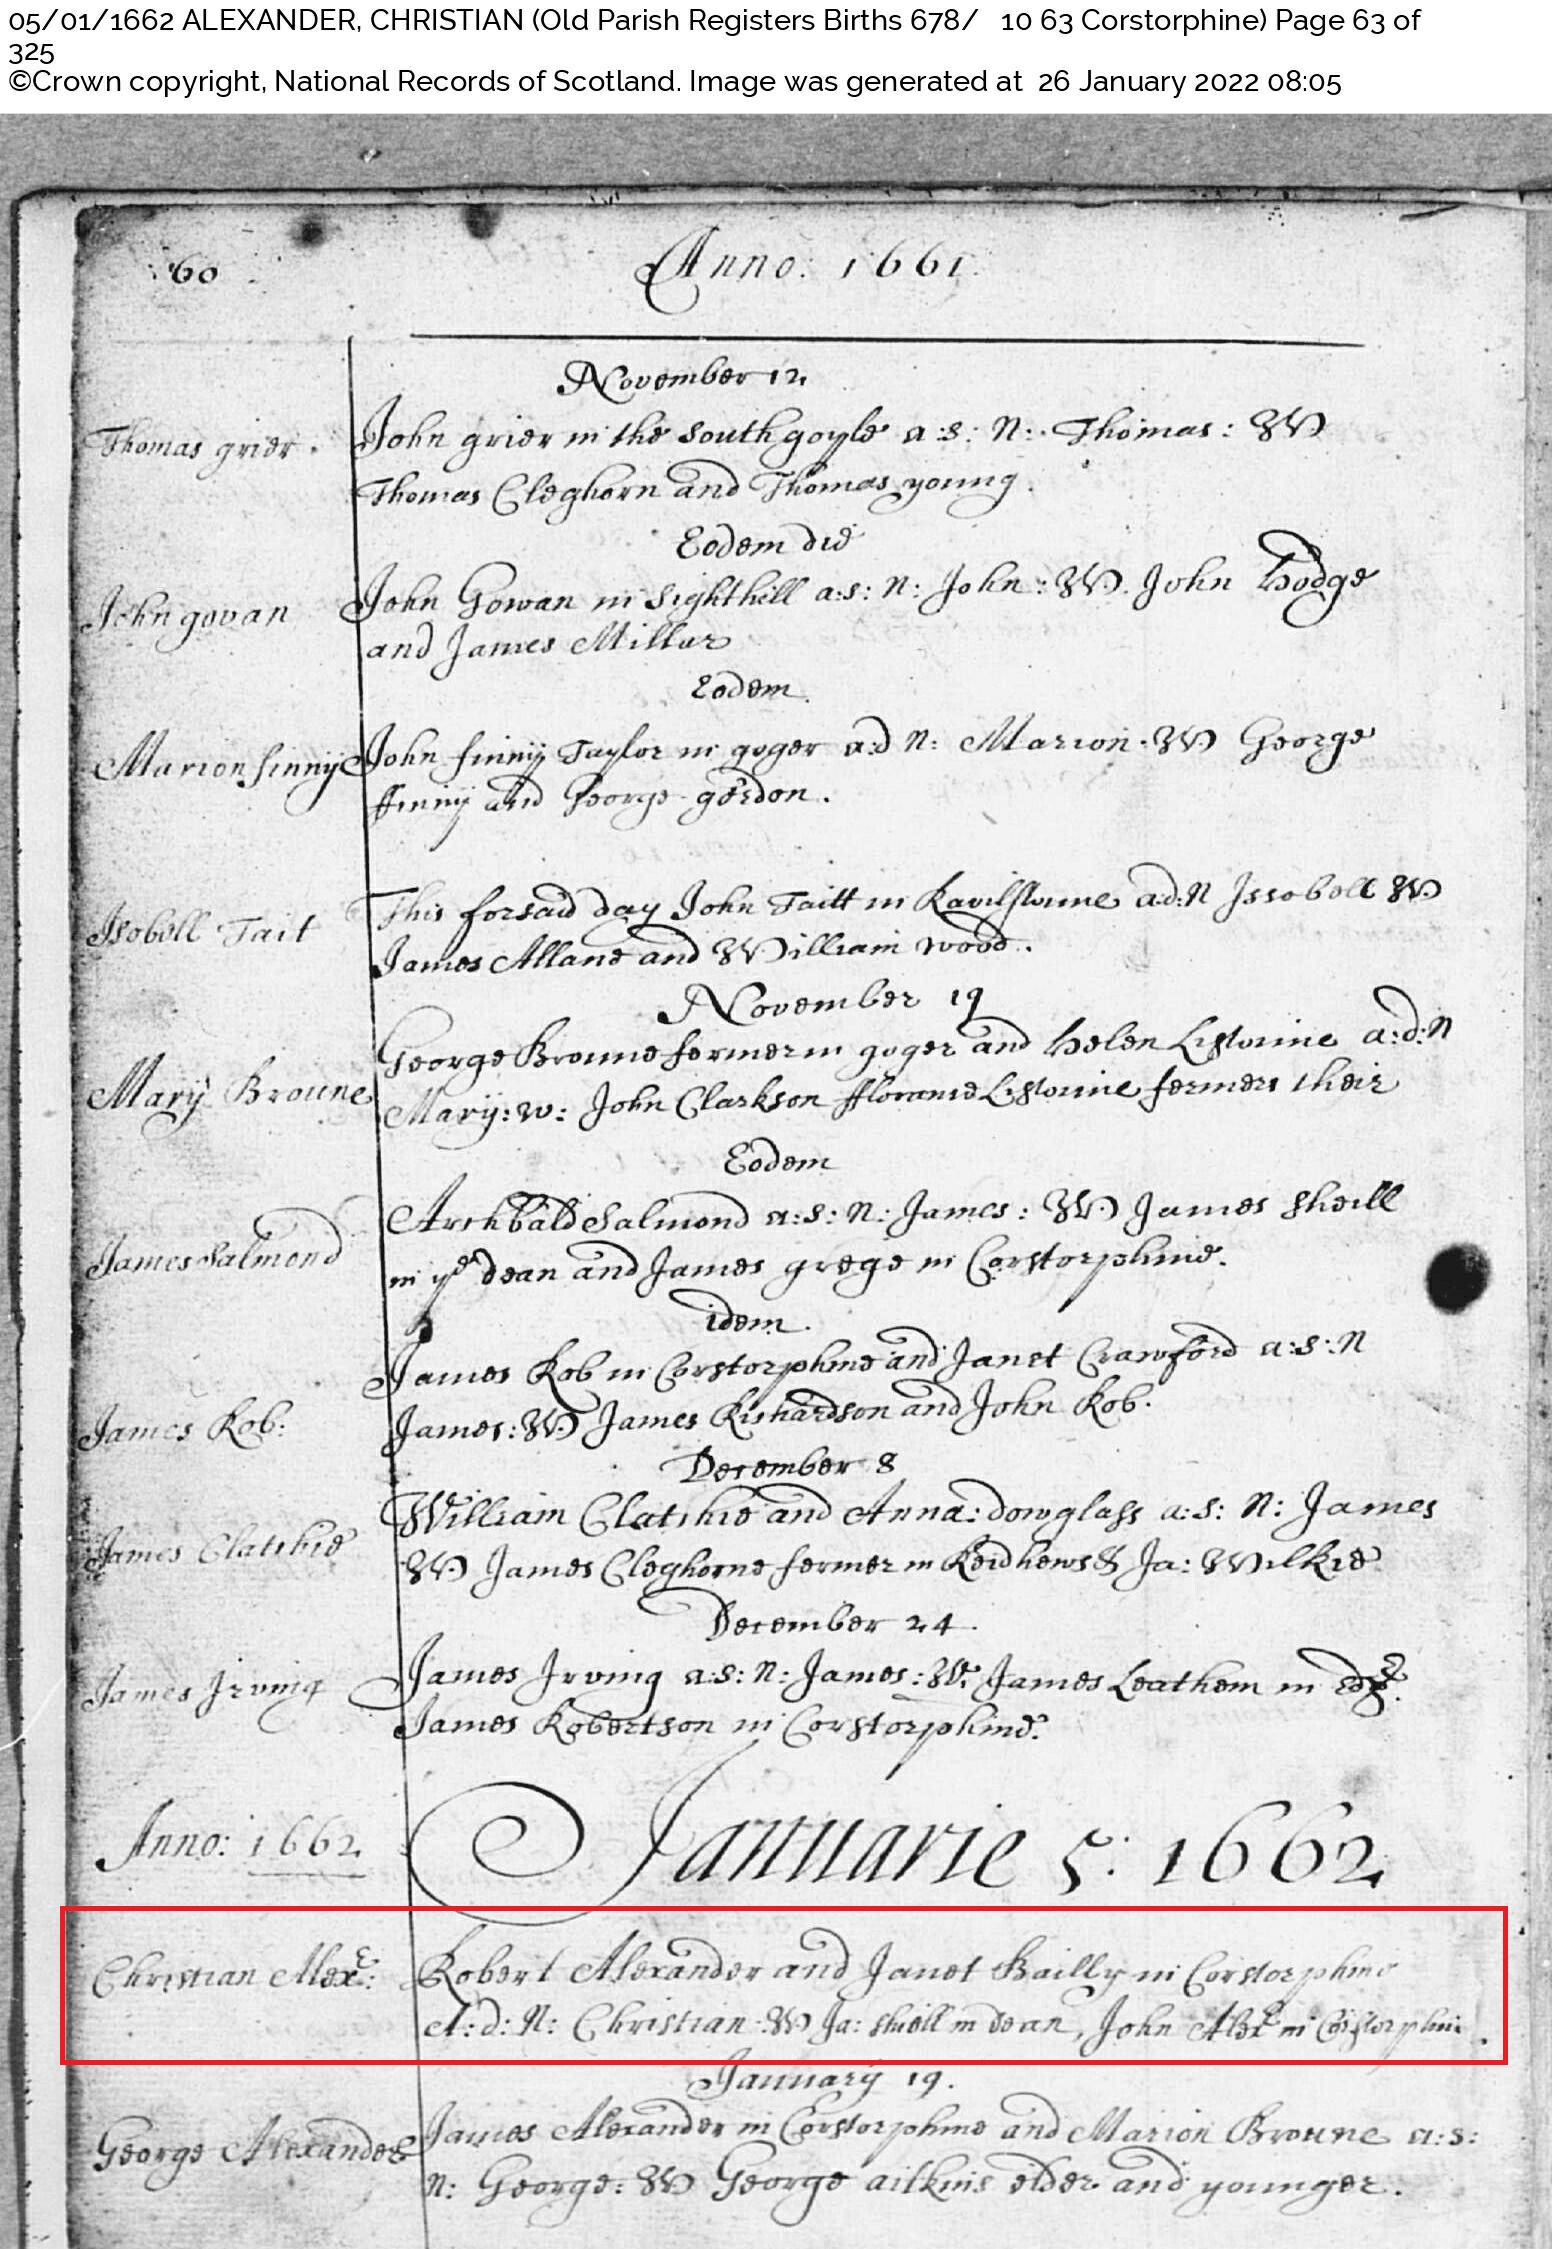 05/01/1662 ALEXANDER, CHRISTIAN (Old Parish Registers Births 678/ 10 63 Corstorphine) Page 63 of
325
©Crown copyright, National Records of Scotland. Image was generated at 26 January 2022 08:05
60 Anno: 1661
November 12
Thomas grier. John grier in the south goyle a:s: N: Thomas: W
Thomas Cleghorn and Thomas young.
Eodem die
John govan John Gowan in Sighthill a:s: N: John: W. John Hodge
and James Millar
Eodem.
Marion finnij John finnij Taylor in goger a:d N: Marion: W George
ffinnij and George gordon.
Isobell Tait This forsaid day John Taitt in a:d:N Issobell W
James Allane and William wood.
November 19
George Broune fermer in goger and Helen Listoune a:d:N
Mary Broune Marij: w: John Clarkson Listoune fermers their
Eodem
Archbald Salmond a:s: N: James: W James Sheill
James Salmond in ye dean and James grege in Corstorphine.
idem.
James Rob in Corstorphine and Janet Crawford a:s:N
James Rob: James: W James Richardson and John Rob.
December 8
William Clatchie and Anna: dowglass a:s: N: James
James Clatchie W James Cleghorne fermer in Reidhews & Ja: Wilkie
December 24.
James Irving James Irving a:s: N: James: W: James Leathem in Edr.
James Robertson in Corstorphine.
Anno: 1662 Januarie 5: 1662
Christian Alexr: Robert Alexander and Janet Bailly in Corstorphine
A:d: N: Christian W Ja: shiell in dean, John Alexr in Corstorphin.
January 19.
George Alexander James Alexander in Corstorphine and Marion Broune a:s:
N: George: W George aitkins elder and younger.